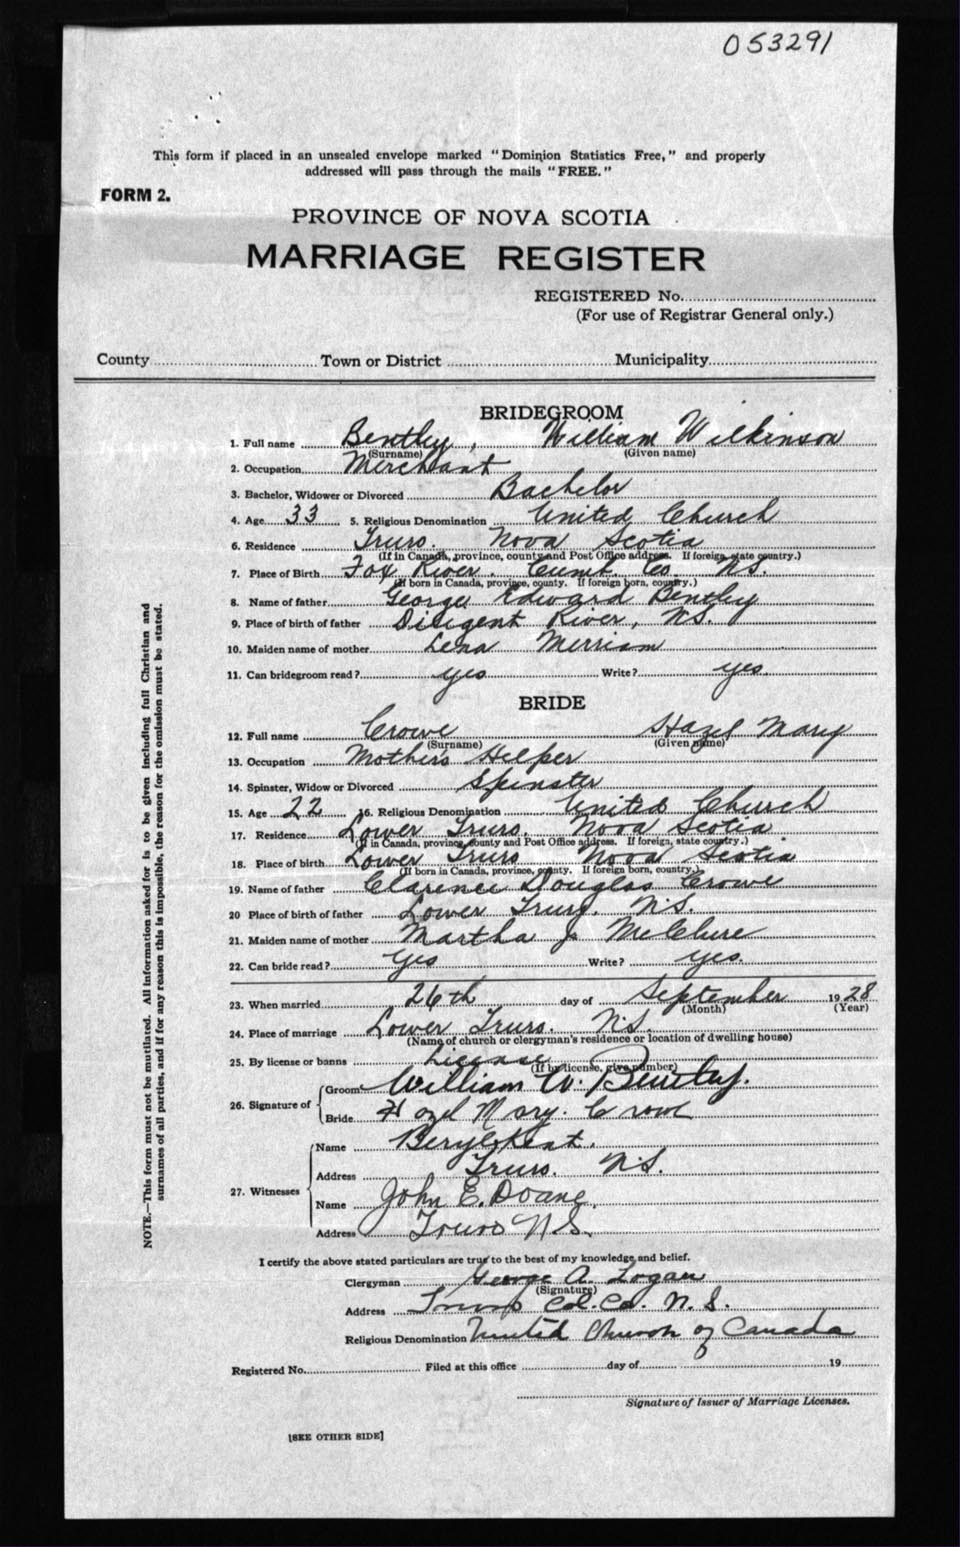 053291
This form if placed in an unsealed envelope marked "Dominion Statistics Free," and properly
addressed will pass through the mails "FREE."
FORM 2.
PROVINCE OF NOVA SCOTIA
MARRIAGE REGISTER
REGISTERED No.
(For use of Registrar General only.)
County Town or District Municipality
BRIDEGROOM
1. Full name Bentley, William Wilkinson
(Surname) (Given name)
2. Occupation Merchant
3. Bachelor, Widower or Divorced Bachelor
4. Age 33 5. Religious Denomination United Church
6. Residence Truro. Nova Scotia
(If in Canada, province, county and Post Office address. If foreign, state country.)
7. Place of Birth Fox River. Cumb. Co. N.S.
(If born in Canada, province, county. If foreign born, country.)
8. Name of father George Edward Bentley
9. Place of birth of father Diligent River, N.S.
10. Maiden name of mother Lena Merriam
11. Can bridegroom read? yes Write? yes.
BRIDE
12. Full name Crowe Hazel Mary
(Surname) (Given name)
13. Occupation Mother's Helper
14. Spinster, Widow or Divorced Spinster
15. Age 22 16. Religious Denomination United Church
17. Residence Lower Truro. Nova Scotia
(If in Canada, province, county and Post Office address. If foreign, state country.)
18. Place of birth Lower Truro Nova Scotia
(If born in Canada, province, county. If foreign born, country.)
19. Name of father Clarence Douglas Crowe
20 Place of birth of father Lower Truro. N.S.
21. Maiden name of mother Martha J McClure
22. Can bride read? yes Write? yes.
23. When married 26th day of September 1928
(Month) (Year)
24. Place of marriage Lower Truro. N.S.
(Name of church or clergyman's residence or location of dwelling house)
25. By license or banns License
(If by license, give number)
26. Signature of Groom William W. Bentley.
Bride Hazel Mary. Crowe
27. Witnesses Name Beryl Kent.
Address Truro. N.S.
Name John E. Doane,
Address Truro N.S.
I certify the above stated particulars are true to the best of my knowledge and belief.
Clergyman George A. Logan
(Signature)
Address Truro Col. Co. N.S.
Religious Denomination United Church of Canada
Registered No. Filed at this office day of 19
Signature of Issuer of Marriage Licenses.
[SEE OTHER SIDE]
NOTE.—This form must not be mutilated. All information asked for is to be given including full Christian and
surnames of all parties, and if for any reason this is impossible, the reason for the omission must be stated.